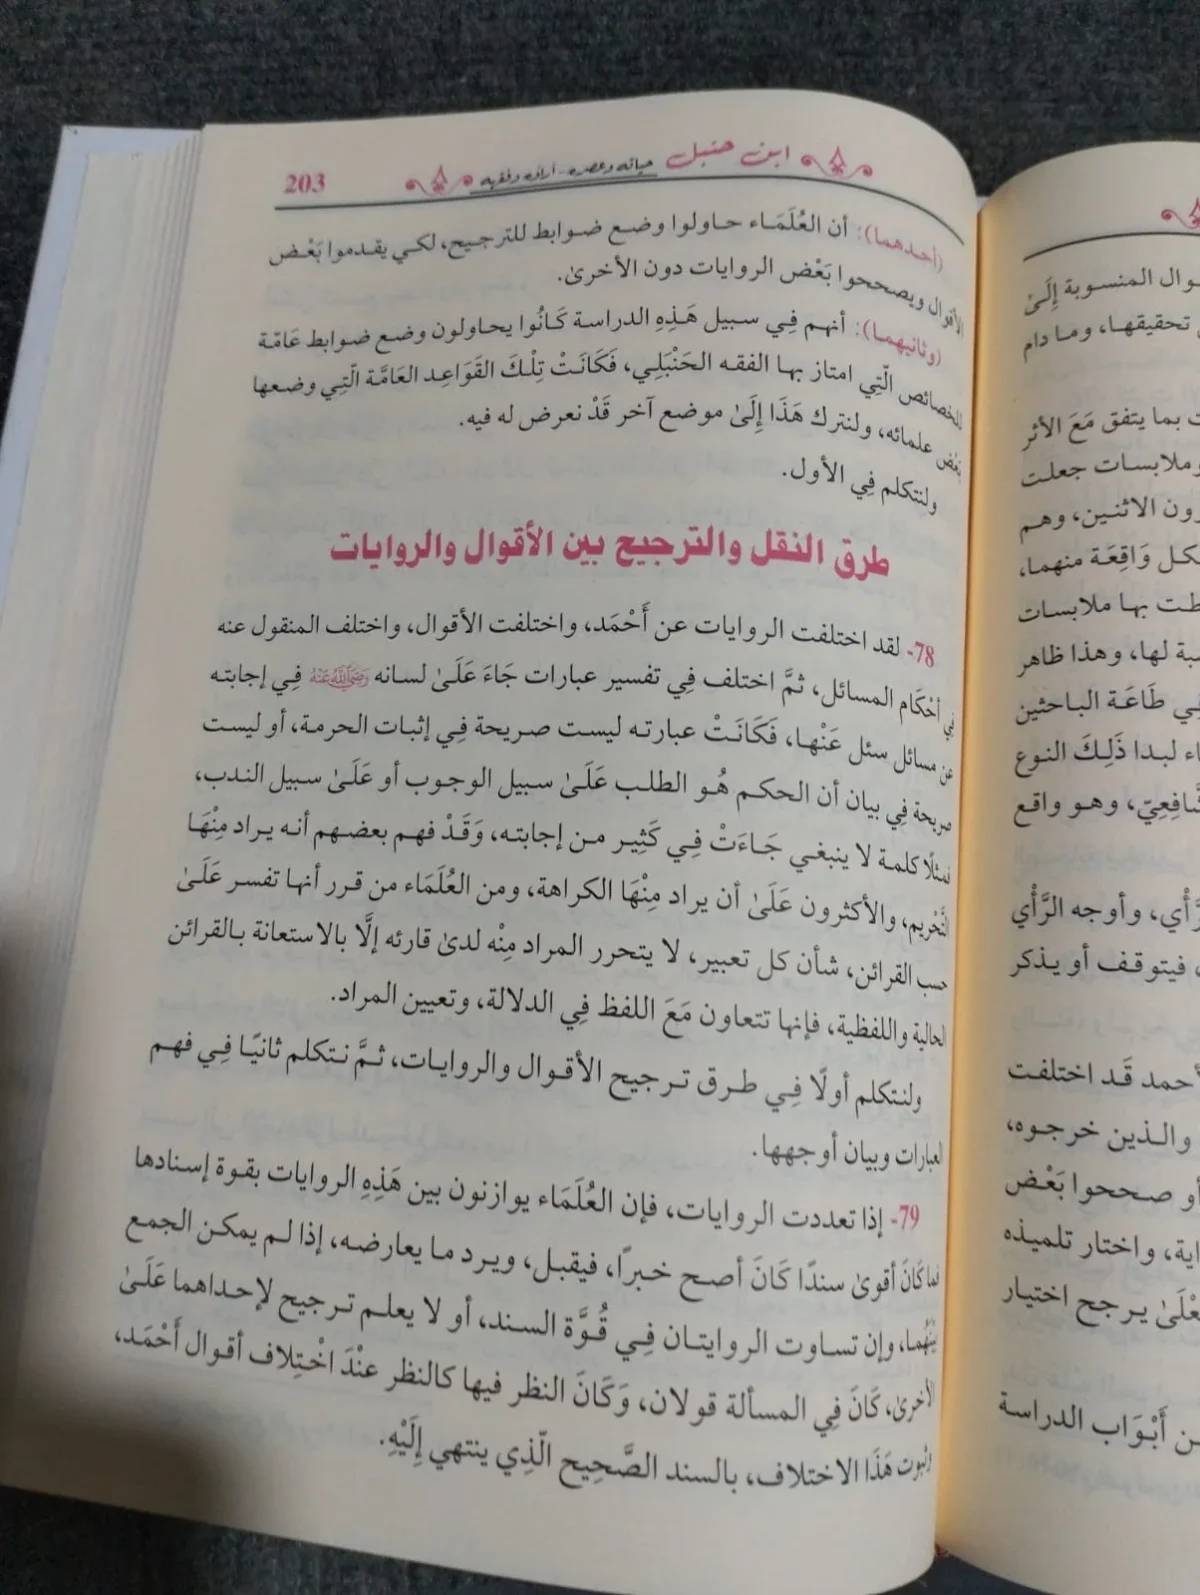 203
ابن حنبل حياته وعصره - آراؤه وفقهه
(أحدهما): أن العُلَمَاء حاولوا وضع ضوابط للترجيح، لكي يقدموا بَعْض
الأقوال ويصححوا بَعْض الروايات دون الأخرىٰ.
(وثانيهما): أنهم فِي سبيل هَذِهِ الدراسة كَانُوا يحاولون وضع ضوابط عَامّة
للخصائص الَّتِي امتاز بها الفقه الحَنْبَلِي، فَكَانَتْ تِلْكَ القَوَاعِد العَامَّة الَّتِي وضعها
بَعْض علمائه، ولنترك هَذَا إِلَىٰ موضع آخر قَدْ نعرض له فيه.
ولنتكلم فِي الأول.
طرق النقل والترجيح بين الأقوال والروايات
78- لقد اختلفت الروايات عن أَحْمَد، واختلفت الأقوال، واختلف المنقول عنه
فِي أَحْكَام المسائل، ثمَّ اختلف فِي تفسير عبارات جَاءَ عَلَىٰ لسانه رَضِيَ اللَّهُ عَنْهُ فِي إجابته
عن مسائل سئل عَنْها، فَكَانَتْ عبارته ليست صريحة فِي إثبات الحرمة، أو ليست
صريحة فِي بيان أن الحكم هُو الطلب عَلَىٰ سبيل الوجوب أو عَلَىٰ سبيل الندب،
فمثلًا كلمة لا ينبغي جَاءَتْ فِي كَثِير من إجابته، وَقَدْ فهم بعضهم أنه يراد مِنْهَا
التَّحْرِيم، والأكثرون عَلَىٰ أن يراد مِنْهَا الكراهة، ومن العُلَمَاء من قرر أنها تفسر عَلَىٰ
حسب القرائن، شأن كل تعبير، لا يتحرر المراد مِنْه لدىٰ قارئه إلَّا بالاستعانة بالقرائن
الحالية واللفظية، فإنها تتعاون مَعَ اللفظ فِي الدلالة، وتعيين المراد.
ولنتكلم أولًا فِي طرق ترجيح الأقوال والروايات، ثمَّ نتكلم ثانيًا فِي فهم
العبارات وبيان أوجهها.
79- إذا تعددت الروايات، فإن العُلَمَاء يوازنون بين هَذِهِ الروايات بقوة إسنادها
فما كَانَ أقوىٰ سندًا كَانَ أصح خبرًا، فيقبل، ويرد ما يعارضه، إذا لم يمكن الجمع
بَيْنَهُما، وإن تساوت الروايتان فِي قُوَّة السند، أو لا يعلم ترجيح لإحداهما عَلَىٰ
الأخرىٰ، كَانَ فِي المسألة قولان، وَكَانَ النظر فيها كالنظر عنْدَ اخْتِلاف أقوال أَحْمَد،
وثبوت هَذَا الاختلاف، بالسند الصَّحِيح الَّذِي ينتهي إِلَيْهِ.
المنسوبة إِلَىٰ
تحقيقها، وما دام
بما يتفق مَعَ الأثر
وملابسات جعلت
الاثنين، وهم
وَاقِعَة منهما،
بها ملابسات
لها، وهذا ظاهر
طَاعَة الباحثين
لبدا ذَلِكَ النوع
وهو واقع
وأوجه الرَّأْي
فيتوقف أو يذكر
قَد اختلفت
والذين خرجوه،
أو صححوا بَعْض
واختار تلميذه
يرجح اختيار
أَبْوَاب الدراسة